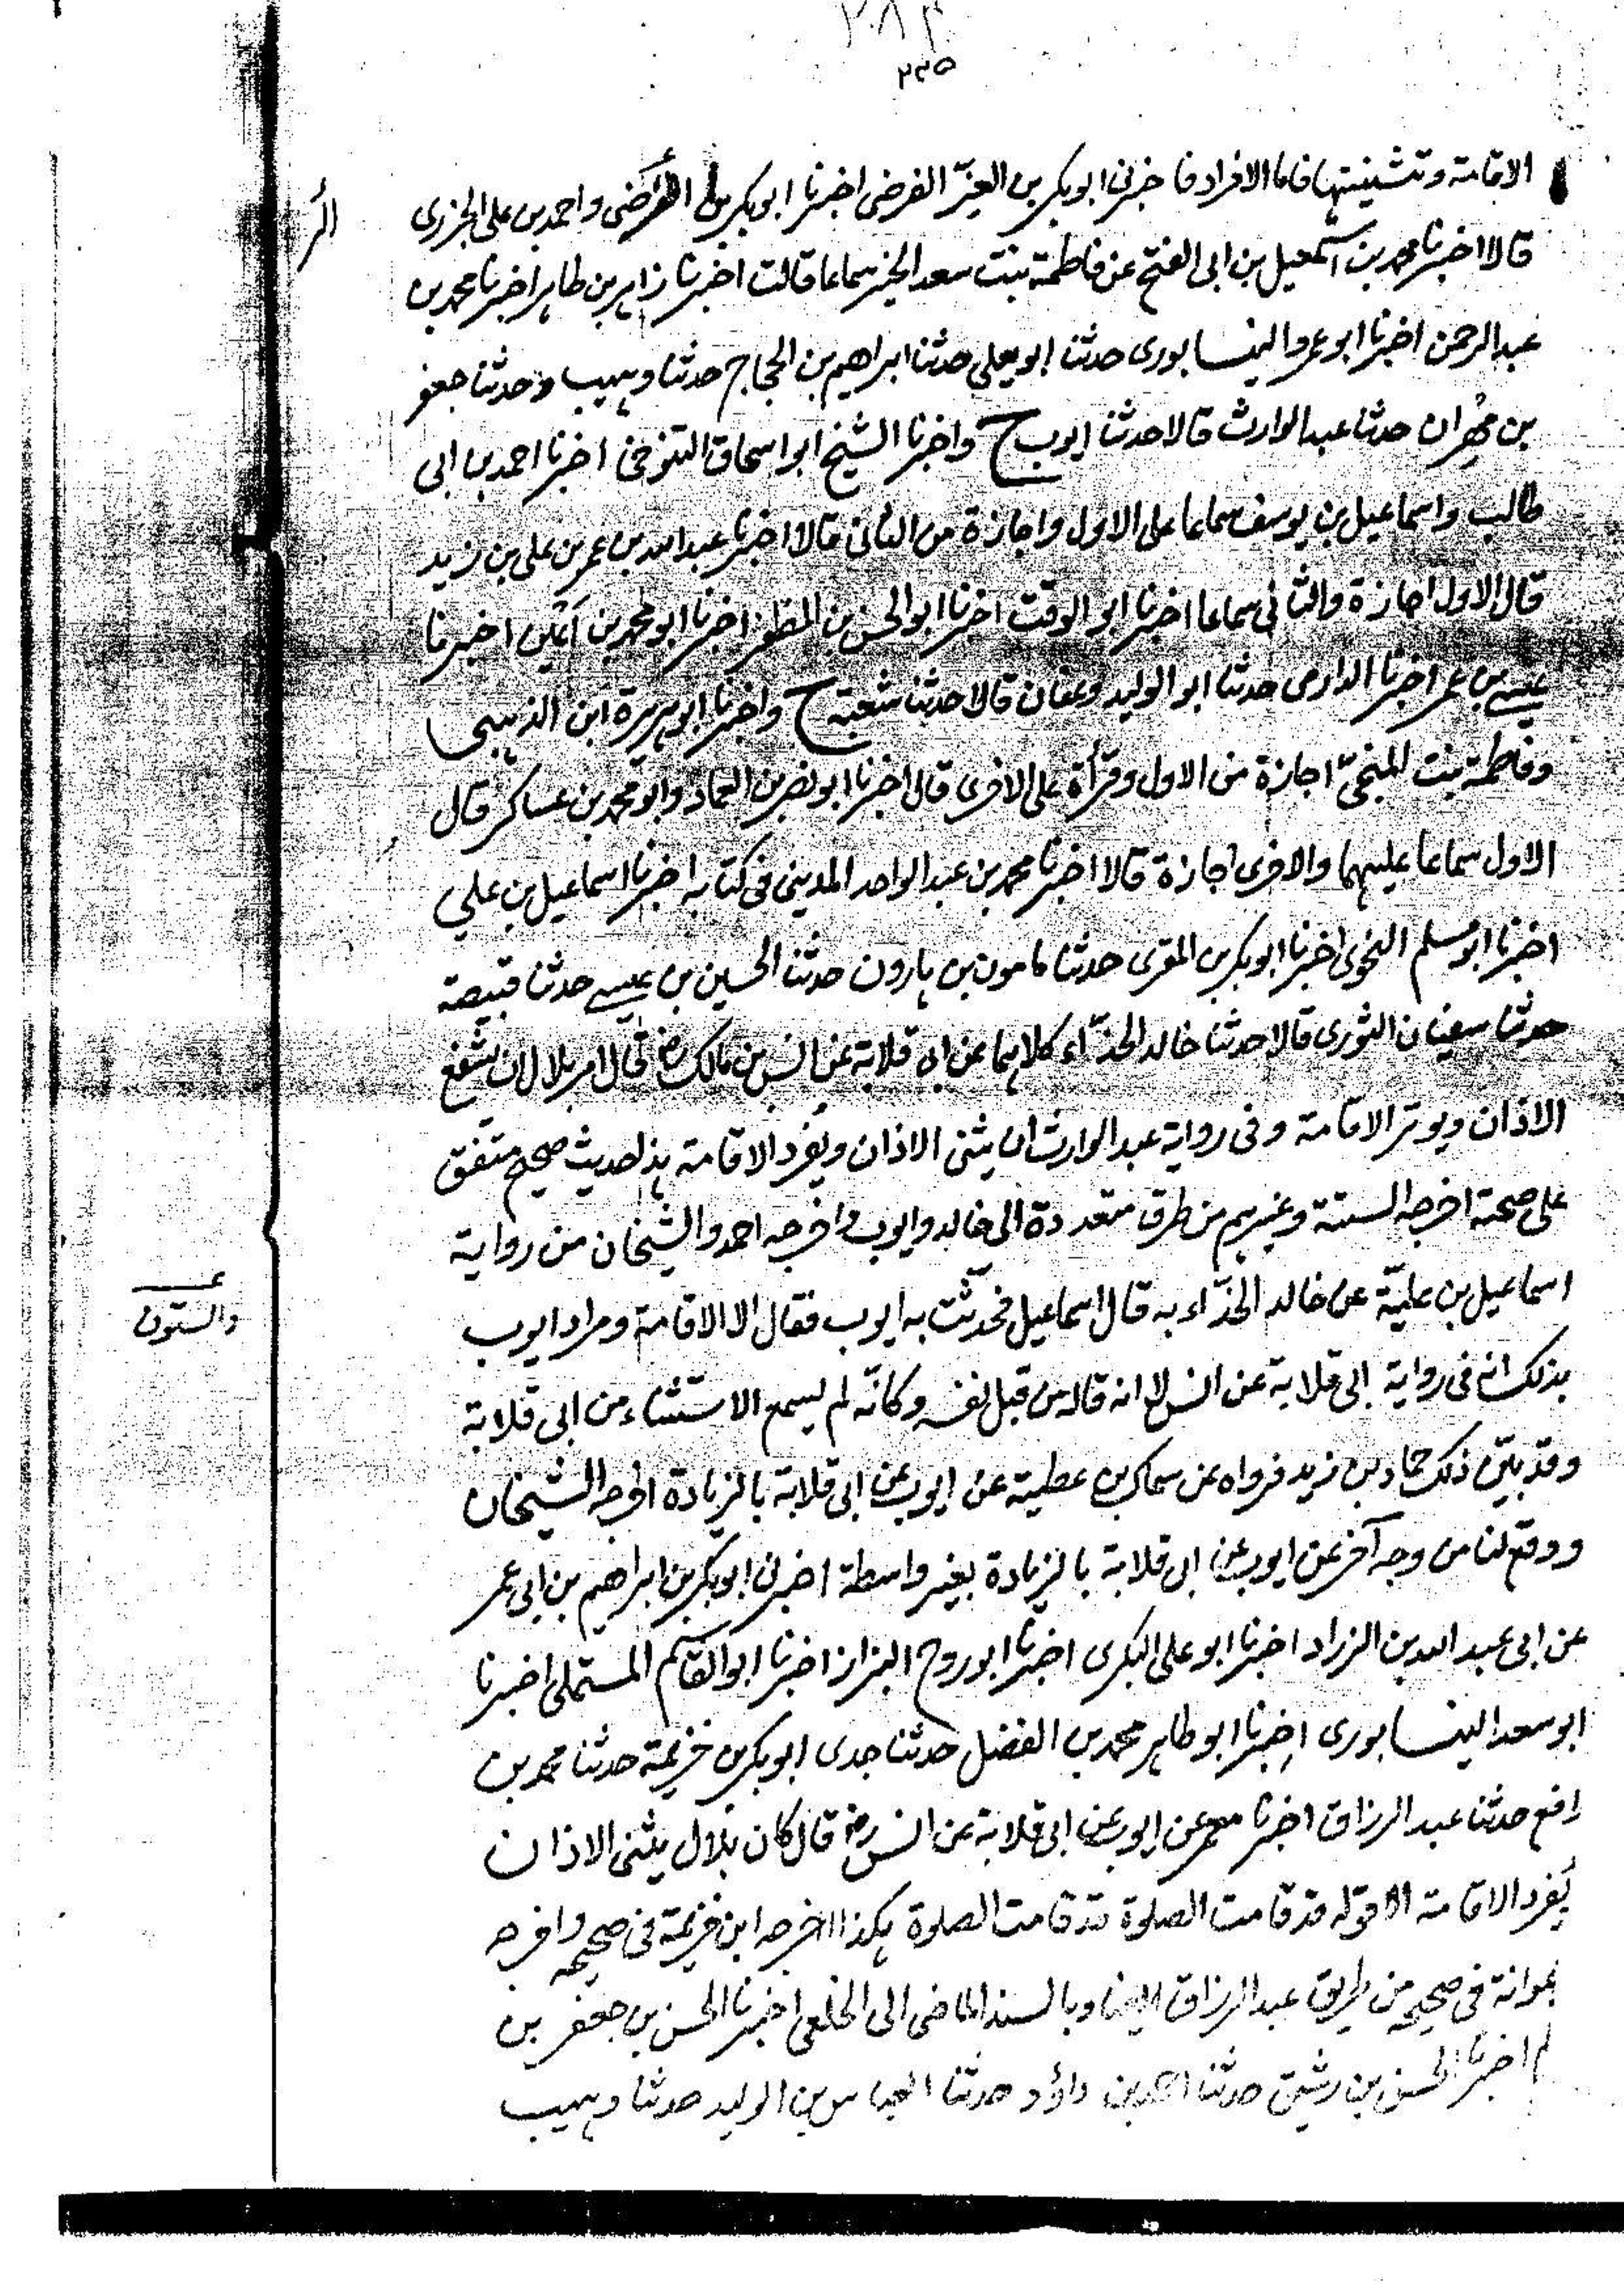 ٢٨٣
٢٣٥
الاقامة وتثنيتها فاما الافراد فاخبرنى ابوبكر بن العزّ الفرضى اخبرنا ابوبكر بن الرضى واحمد بن على الجزرى
قالا اخبرنا محمد بن اسمعيل بن ابى الفتح عن فاطمة بنت سعد الخير سماعا قالت اخبرنا زاهر بن طاهر اخبرنا محمد بن
عبد الرحمن اخبرنا ابو عمرو النيسابورى حدثنا ابو يعلى حدثنا ابراهيم بن الحجاج حدثنا وهيب وحدثنا جعفر
بن مِهْران حدثنا عبد الوارث قالا حدثنا ايوب ح واخبرنا الشيخ ابو اسحاق التنوخى اخبرنا احمد بن ابى
طالب واسماعيل بن يوسف سماعا على الاول واجازة من الثانى قالا اخبرنا عبد الله بن عمر بن على بن زيد
قال الاول اجازة والثانى سماعا اخبرنا ابو الوقت اخبرنا ابو الحسن بن المظفر اخبرنا ابو محمد بن اَعْيَن اخبرنا
عيسى بن عمر اخبرنا الدارمى حدثنا ابو الوليد وعفان قالا حدثنا شعبة ح واخبرنا ابو هريرة ابن الذهبى
وفاطمة بنت المنجّى اجازة من الاول وقرأة على الاخرى قالا اخبرنا ابو نصر بن العماد وابو محمد بن عساكر قال
الاول سماعا عليهما والاخرى اجازة قالا اخبرنا محمد بن عبد الواحد المدينى فى كتابه اخبرنا اسماعيل بن على
اخبرنا ابو مسلم النحوى اخبرنا ابوبكر بن المقرى حدثنا مامون بن هارون حدثنا الحسين بن عيسى حدثنا قبيصة
حدثنا سفيان الثورى قالا حدثنا خالد الحذّاء كلاهما عن ابى قلابة عن انس بن مالك رض قال امر بلال ان يشفع
الاذان ويوتر الاقامة وفى رواية عبد الوارث ان يثنى الاذان ويفرد الاقامة هذا حديث صحيح متفق
على صحته اخرجه الستة وغيرهم من طرق متعددة الى خالد وايوب واخرجه احمد والشيخان من رواية
اسماعيل بن عليّة عن خالد الحذّاء به قال اسماعيل فحدّثت به ايوب فقال الا الاقامة ومراد ايوب
بذلك انه فى رواية ابى قلابة عن انس لا انه قاله من قبل نفسه وكانّه لم يسمع الاستثناء من ابى قلابة
وقد بيّن ذلك حماد بن زيد فرواه عن سماك بن عطية عن ايوب عن ابى قلابة بالزيادة اخرجه الشيخان
ووقع لنا من وجه آخر عن ايوب عن ابى قلابة بالزيادة بغير واسطة اخبرنى ابوبكر بن ابراهيم بن ابى عمر
عن ابى عبد الله بن الزراد اخبرنا ابو على البكرى اخبرنا ابو روح البزاز اخبرنا ابو القاسم المستملى اخبرنا
ابو سعد النيسابورى اخبرنا ابو طاهر محمد بن الفضل حدثنا جدى ابوبكر بن خزيمة حدثنا محمد بن
رافع حدثنا عبد الرزاق اخبرنا معمر عن ايوب عن ابى قلابة عن انس رض قال كان بلال يثنى الاذان
يُفرد الاقامة الا قوله قد قامت الصلوة قد قامت الصلوة هكذا اخرجه ابن خزيمة فى صحيحه واخرجه
عوانة فى صحيحه من طريق عبد الرزاق ايضا وبالسند الماضى الى الخلعى اخبرنا الحسن بن جعفر بن
اخبرنا الحسن بن رشيق حدثنا احمد بن داؤد حدثنا العباس بن الوليد حدثنا وهيب
والستون